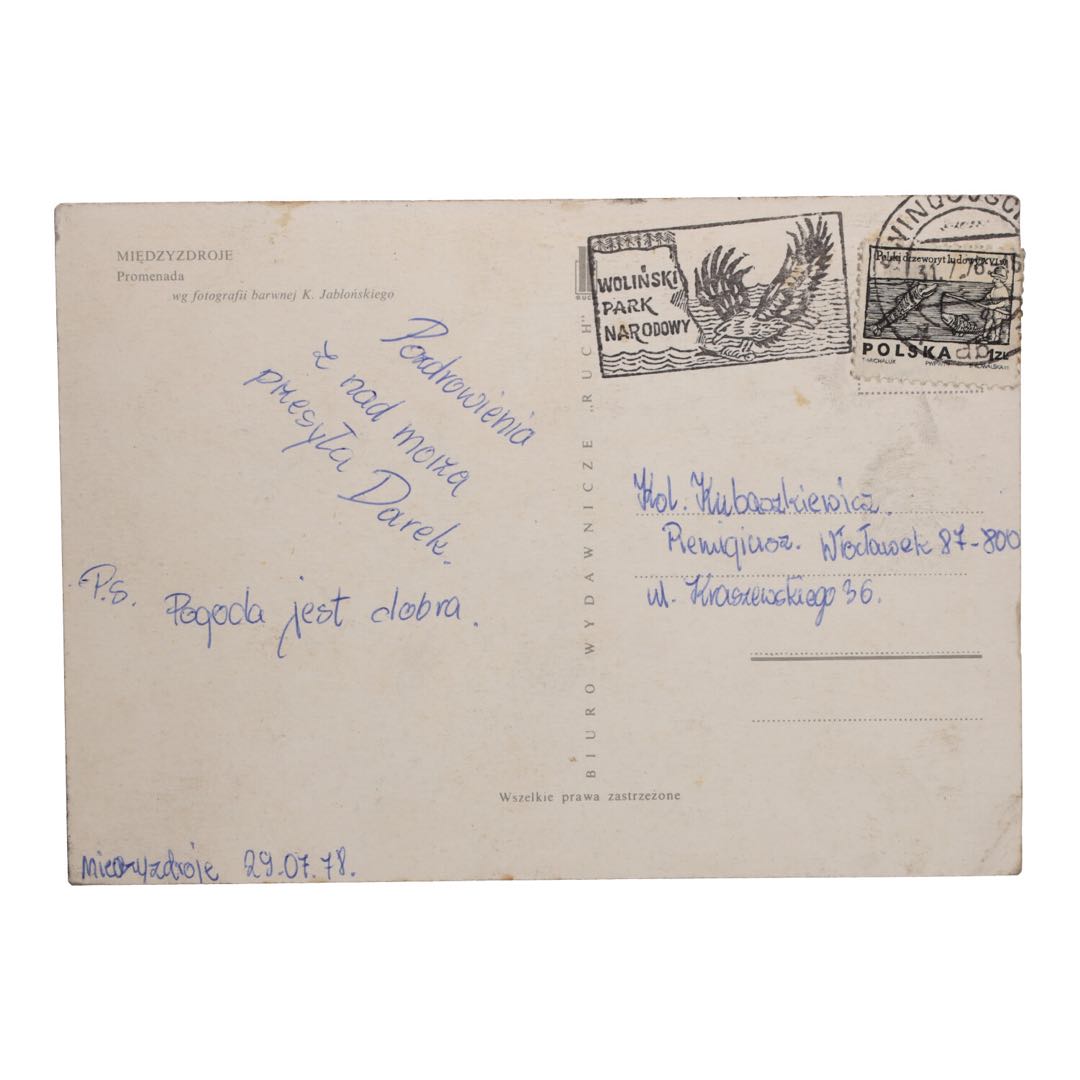 MIĘDZYZDROJE
Promenada
wg fotografii barwnej K. Jabłońskiego
Pozdrowienia
z nad morza
przesyła Darek.
P.S. Pogoda jest dobra.
Międzyzdroje 29.07.78.
BIURO WYDAWNICZE „RUCH"
Wszelkie prawa zastrzeżone
WOLIŃSKI
PARK
NARODOWY
31.7.78
Polski drzeworyt ludowy XVI w
POLSKA 1ZŁ
T. MICHALUK
Kol. Kubaszkiewicz.
Remigiusz. Włocławek 87-800
ul. Kraszewskiego 36.